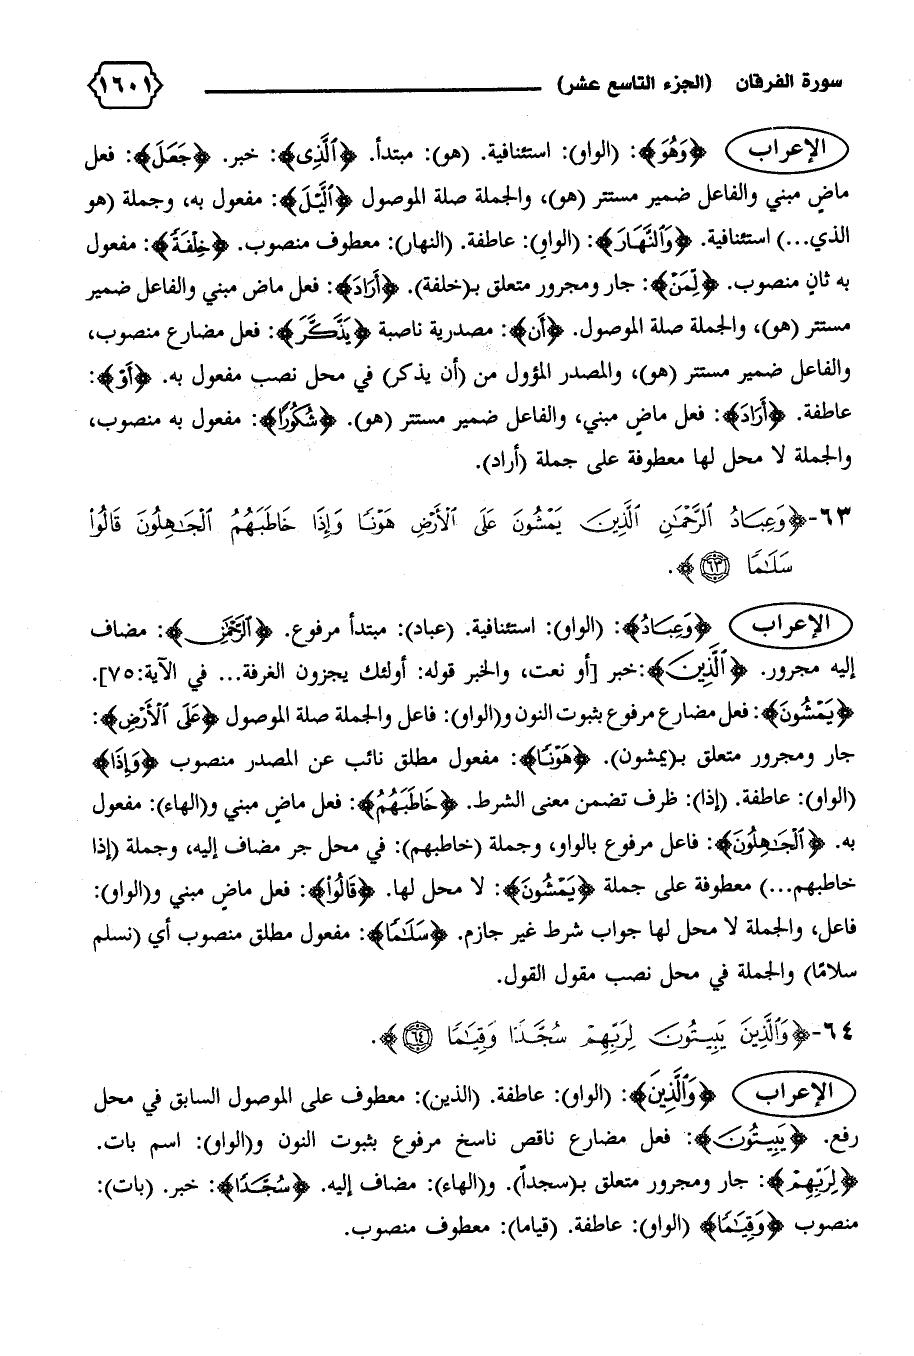 سورة الفرقان (الجزء التاسع عشر) ١٦٠١
الإعراب ﴿وَهُوَ﴾: (الواو): استئنافية. (هو): مبتدأ. ﴿ٱلَّذِى﴾: خبر. ﴿جَعَلَ﴾: فعل
ماضٍ مبني والفاعل ضمير مستتر (هو)، والجملة صلة الموصول ﴿ٱلَّيْلَ﴾: مفعول به، وجملة (هو
الذي...) استئنافية. ﴿وَٱلنَّهَارَ﴾: (الواو): عاطفة. (النهار): معطوف منصوب. ﴿خِلْفَةً﴾: مفعول
به ثانٍ منصوب. ﴿لِّمَنْ﴾: جار ومجرور متعلق بـ(خلفة). ﴿أَرَادَ﴾: فعل ماض مبني والفاعل ضمير
مستتر (هو)، والجملة صلة الموصول. ﴿أَن﴾: مصدرية ناصبة ﴿يَذَّكَّرَ﴾: فعل مضارع منصوب،
والفاعل ضمير مستتر (هو)، والمصدر المؤول من (أن يذكر) في محل نصب مفعول به. ﴿أَوْ﴾:
عاطفة. ﴿أَرَادَ﴾: فعل ماضٍ مبني، والفاعل ضمير مستتر (هو). ﴿شُكُورًا﴾: مفعول به منصوب،
والجملة لا محل لها معطوفة على جملة (أراد).
٦٣-﴿وَعِبَادُ ٱلرَّحْمَـٰنِ ٱلَّذِينَ يَمْشُونَ عَلَى ٱلْأَرْضِ هَوْنًا وَإِذَا خَاطَبَهُمُ ٱلْجَـٰهِلُونَ قَالُوا۟
سَلَـٰمًا ٦٣﴾.
الإعراب ﴿وَعِبَادُ﴾: (الواو): استئنافية. (عباد): مبتدأ مرفوع. ﴿ٱلرَّحْمَـٰنِ﴾: مضاف
إليه مجرور. ﴿ٱلَّذِينَ﴾:خبر [أو نعت، والخبر قوله: أولئك يجزون الغرفة... في الآية:٧٥].
﴿يَمْشُونَ﴾: فعل مضارع مرفوع بثبوت النون و(الواو): فاعل والجملة صلة الموصول ﴿عَلَى ٱلْأَرْضِ﴾:
جار ومجرور متعلق بـ(يمشون). ﴿هَوْنًا﴾: مفعول مطلق نائب عن المصدر منصوب ﴿وَإِذَا﴾
(الواو): عاطفة. (إذا): ظرف تضمن معنى الشرط. ﴿خَاطَبَهُمُ﴾: فعل ماضٍ مبني و(الهاء): مفعول
به. ﴿ٱلْجَـٰهِلُونَ﴾: فاعل مرفوع بالواو، وجملة (خاطبهم): في محل جر مضاف إليه، وجملة (إذا
خاطبهم...) معطوفة على جملة ﴿يَمْشُونَ﴾: لا محل لها. ﴿قَالُوا۟﴾: فعل ماضٍ مبني و(الواو):
فاعل، والجملة لا محل لها جواب شرط غير جازم. ﴿سَلَـٰمًا﴾: مفعول مطلق منصوب أي (نسلم
سلامًا) والجملة في محل نصب مقول القول.
٦٤-﴿وَٱلَّذِينَ يَبِيتُونَ لِرَبِّهِمْ سُجَّدًا وَقِيَـٰمًا ٦٤﴾.
الإعراب ﴿وَٱلَّذِينَ﴾: (الواو): عاطفة. (الذين): معطوف على الموصول السابق في محل
رفع. ﴿يَبِيتُونَ﴾: فعل مضارع ناقص ناسخ مرفوع بثبوت النون و(الواو): اسم بات.
﴿لِرَبِّهِمْ﴾: جار ومجرور متعلق بـ(سجداً). و(الهاء): مضاف إليه. ﴿سُجَّدًا﴾: خبر. (بات):
منصوب ﴿وَقِيَـٰمًا﴾ (الواو): عاطفة. (قياما): معطوف منصوب.